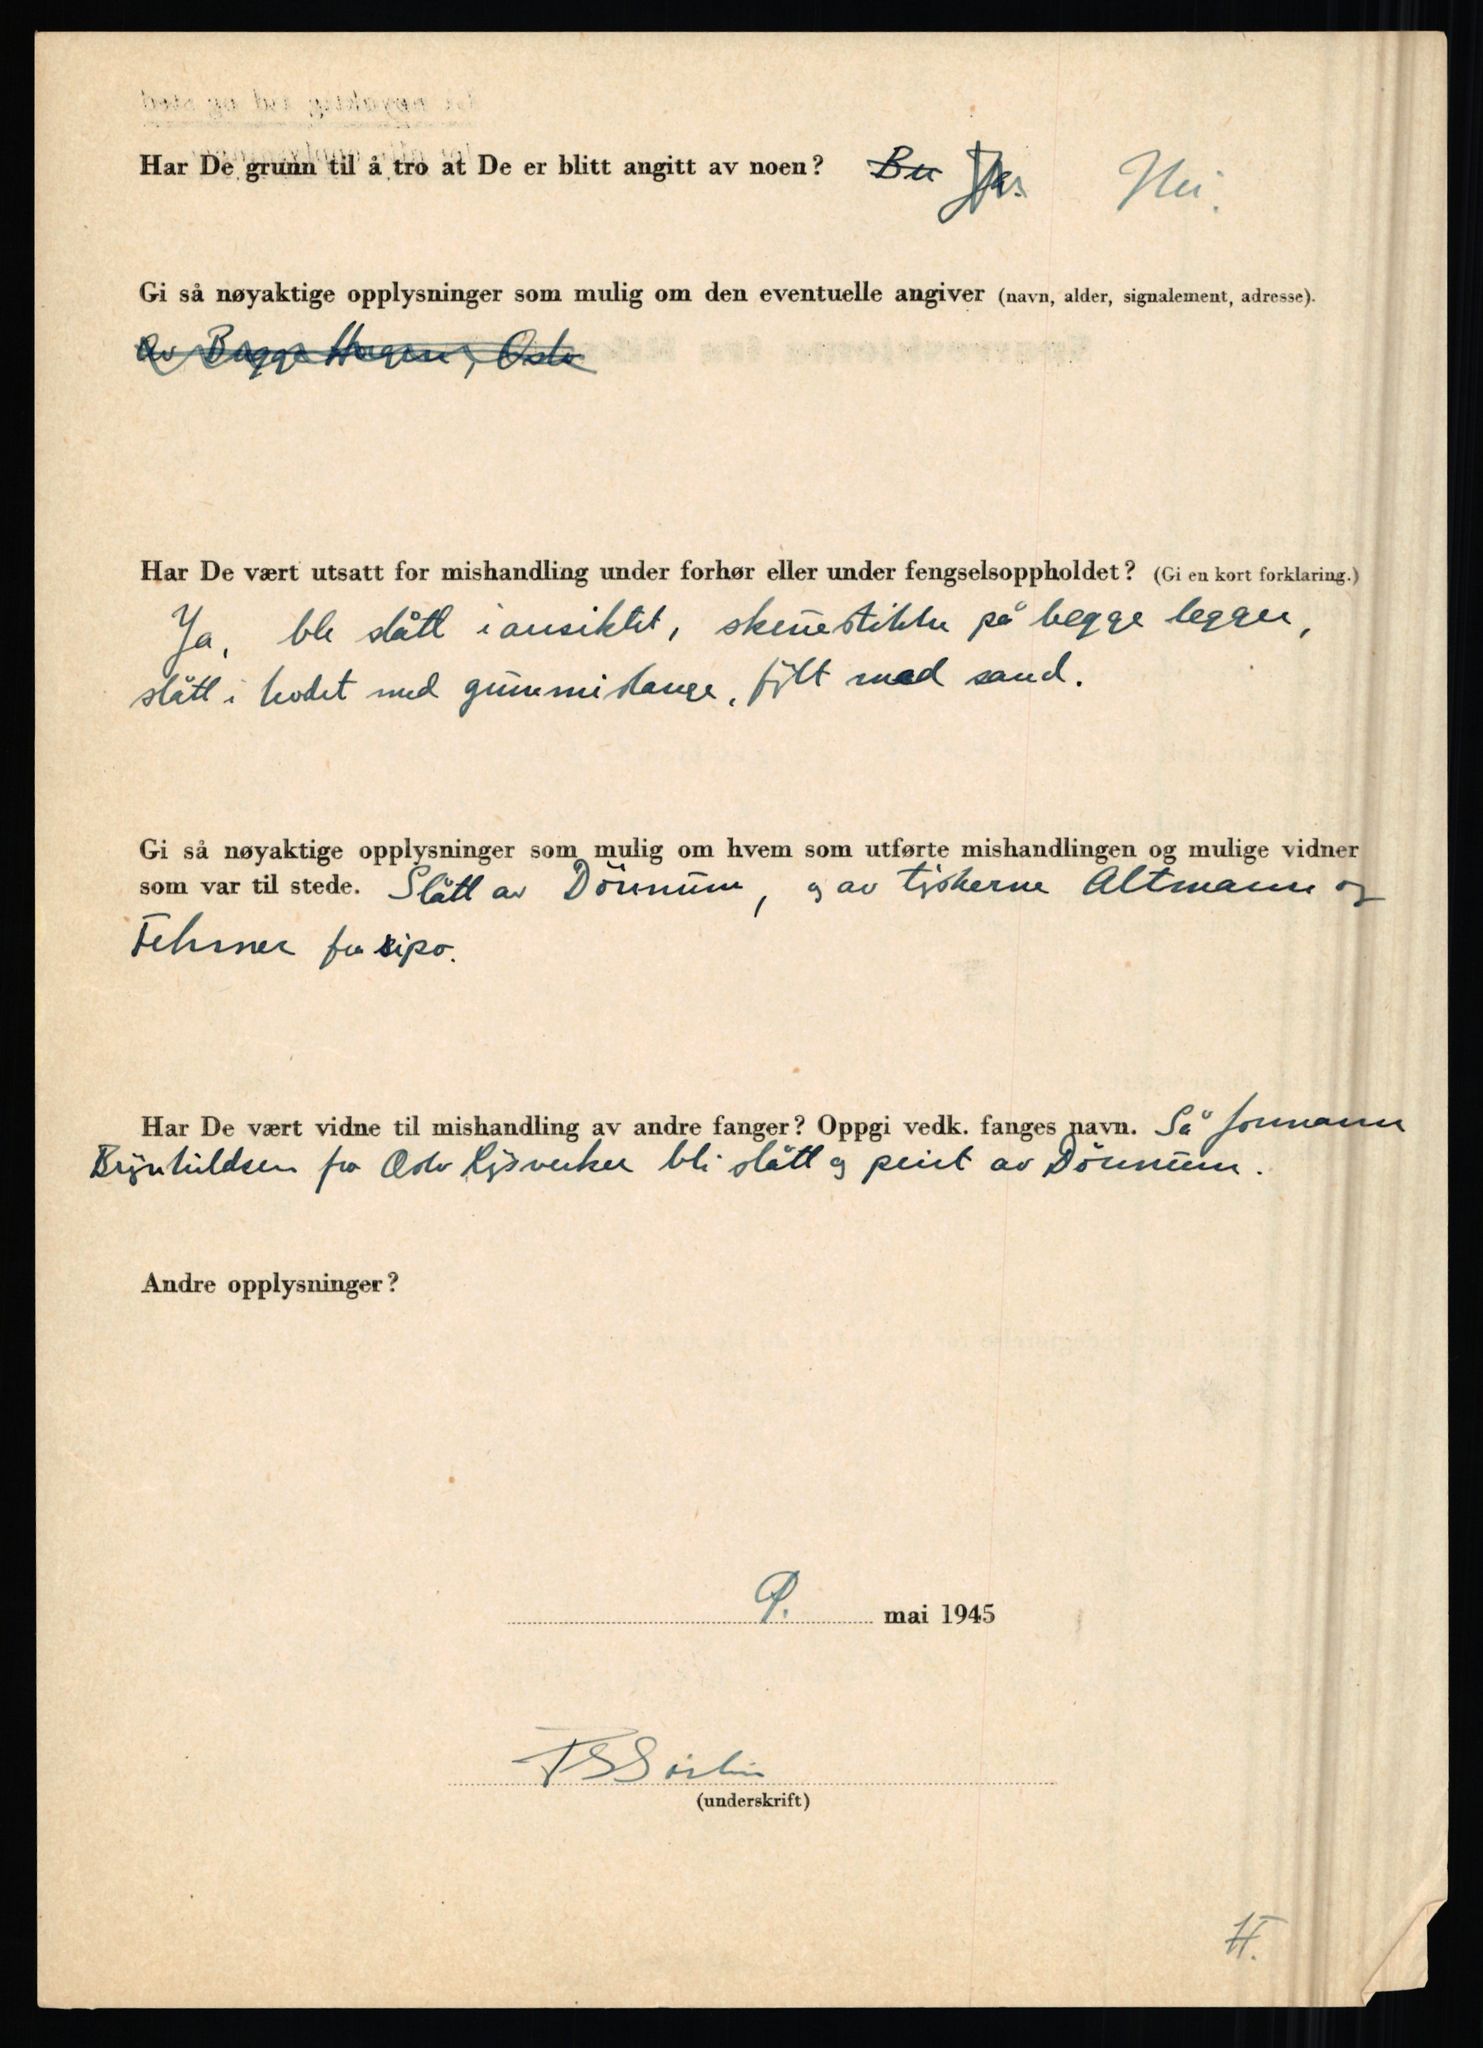 Har De grunn til å tro at De er blitt angitt av noen? Nei.
Gi så nøyaktige opplysninger som mulig om den eventuelle angiver (navn, alder, signalement, adresse).
Av Bagge Haugen, Oslo
Har De vært utsatt for mishandling under forhør eller under fengselsoppholdet? (Gi en kort forklaring.)
Ja, ble slått i ansiktet, på begge legger,
slått i hodet med gummislange, fylt med sand.
Gi så nøyaktige opplysninger som mulig om hvem som utførte mishandlingen og mulige vidner
som var til stede. Slått av Dönnum, og av tyskerne Altmann og
Fehmer fra sipo.
Har De vært vidne til mishandling av andre fanger? Oppgi vedk. fanges navn. Så formann
Brynhildsen fra Oslo lysverker bli slått og peint av Dönnum.
Andre opplysninger?
9. mai 1945
(underskrift)
H.